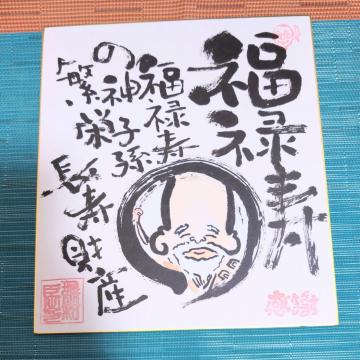 福禄寿
福禄寿
の神子孫
繁栄
長寿財産
感謝